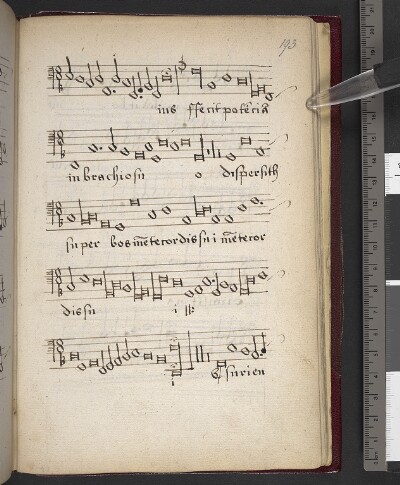 193
ius ffecit potētiā
in brachio su o dispersith
super bos mētecordis su i mētecor
dis su i
Esurien